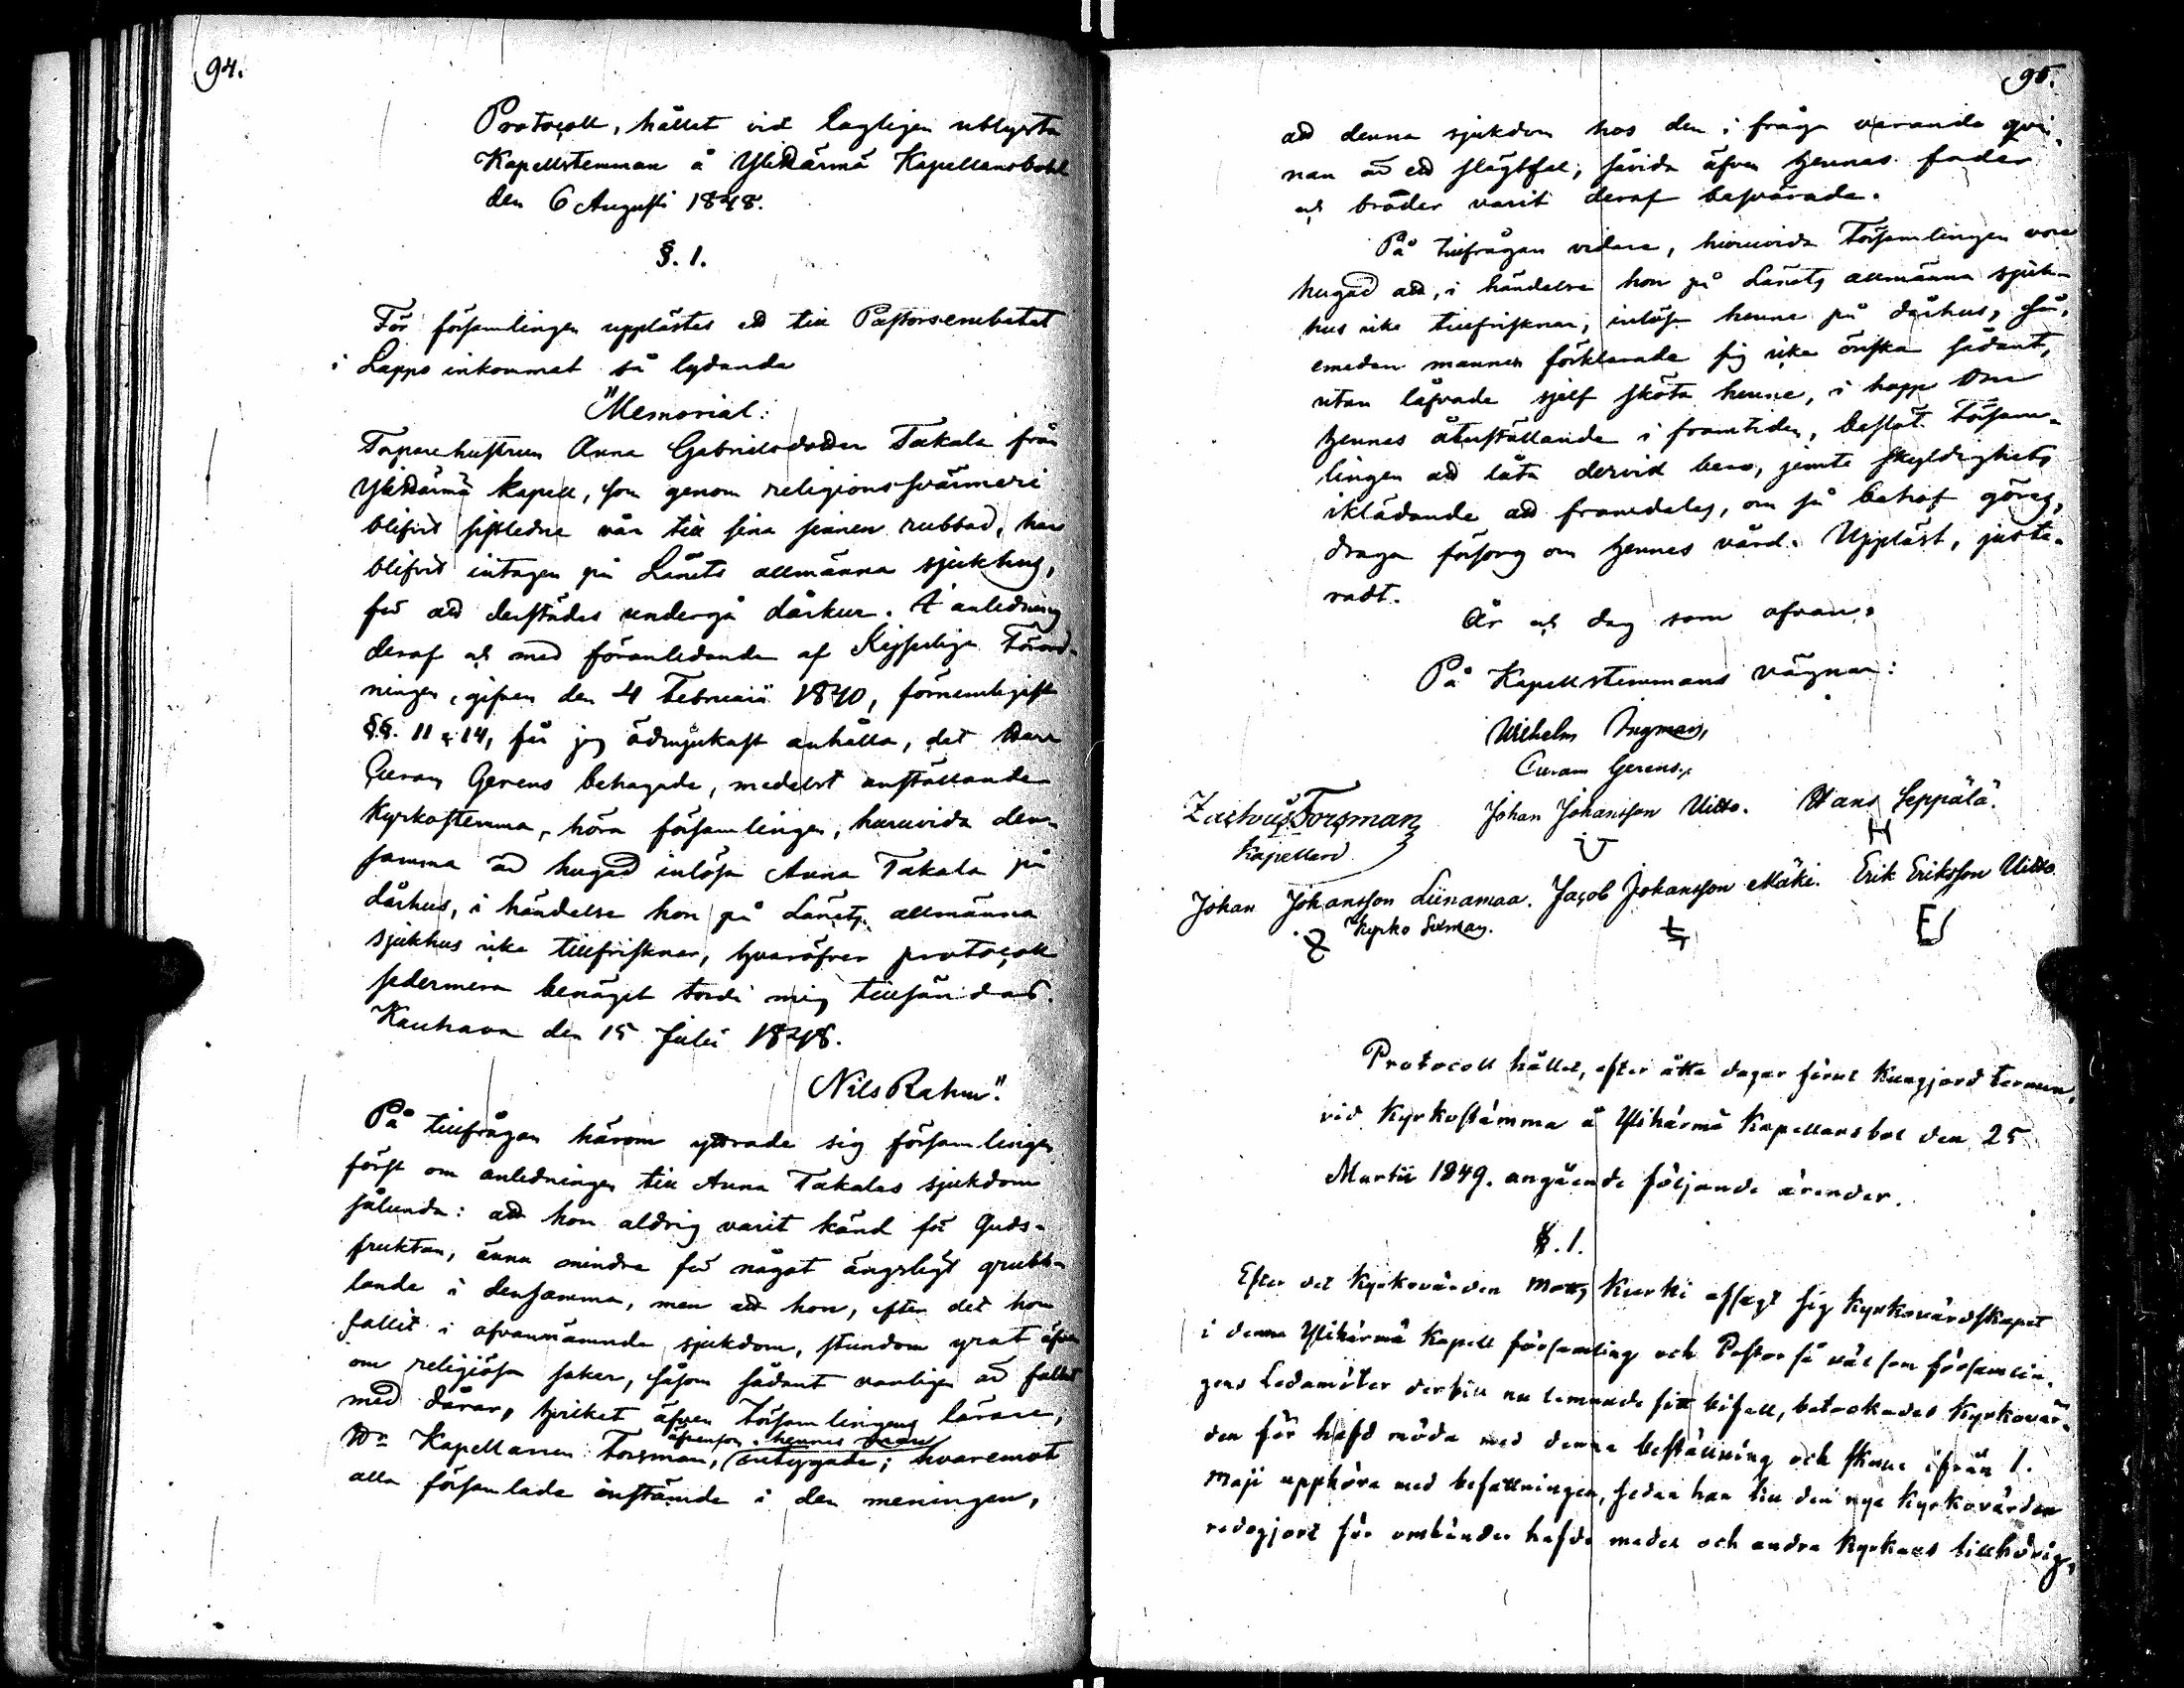 94.
Protocoll, hållet vid lagligen utlyst
Kapellstemman å Ylihärmä Kapellansbohl
den 6 Augusti 1848.
§. 1.
För församlingen upplästes ett till Pastorsembetet
i Lappo inkommet så lydande
"Memorial:
Torparehustrun Anna Gabrielsdotter Takala från
Ylihärmä kapell, som genom religionssvärmeri
blifvit sistledne vår till sina sinnen rubbad, har
blifvit intagen på Länets allmänna sjukhus,
för att derstädes undergå dårkur. I anledning
deraf och med föranledande af Kejserliga Förord-
ningen, gifven den 4 Februarii 1840, förnemligast
§§. 11 & 14, får jag ödmjukast anhålla, det Herr
Curam Gerens behagade, medelst anställande
Kyrkostemma, höra församlingen, huruvida den-
samma är hugad inlösa Anna Takala på
dårhus, i händelse hon på Länets allmänna
sjukhus icke tillfrisknar, hvaröfver protocoll
sedermera benäget torde mig tillsändas.
Kauhava den 15 Julii 1848.
Nils Rahm".
På tillfrågan härom yttrade sig församlingen
först om anledningen till Anna Takalas sjukdom
sålunda: att hon aldrig varit känd för Guds-
fruktan, ännu mindre för något ängsligt grubb-
lande i densamma, men att hon, efter det hon
fallit i ofvannämnde sjukdom, stundom yrat äfven
om religiösa saker, såsom sådant vanligen är fallet
med dårar, hvilket äfven Församlingens lärare,
äfvensom hennes man
Hr Kapellanen Forsman, intygade; hvaremot
alla församlade instämde i den meningen,
95.
att denna sjukdom hos den i fråga varande qvin-
nan är ett slägtfel, såvida äfven hennes fader
och bröder varit deraf besvärade.
På tillfrågan vidare, huruvida Församlingen vore
hugad att, i händelse hon på Länets allmänna sjuk-
hus icke tillfrisknar, inlösa henne på dårhus, så,
emedan mannen förklarade sig icke önska sådant,
utan låfvade sjelf sköta henne, i hopp om
hennes återställande i framtiden, beslöt Försam-
lingen att låta dervid bero, jemte skyldighets
iklädande att framdeles, om så behof göres,
draga försorg om hennes vård. Uppläst, juste-
radt.
År och dag som ofvan.
På Kapellstemmans vägnar:
Wilhelm Ingman,
Curam Gerens.
Zachris Forsman Johan Johansson Uitto. Hans Seppälä.
Kapellan
Johan Johansson Liinamaa. Jacob Johansson Mäki. Erik Eriksson Uitto
Kyrko Sexman.
Protocoll hållet, efter åtta dagar förut kungjord termin,
vid Kyrkostämma å Ylihärmä Kapellansbol den 25
Martii 1849. angående följande ärender.
§. 1.
Efter det Kyrkovärden Matts Kurki afsagt sig Kyrkovärdskapet
i denna Ylihärmä Kapell församling och Pastor så väl som församlin-
gens Ledamöter dertill nu lemnade sitt bifall, betackades Kyrkovär-
den för hafd möda med denna beställning och skulle ifrån 1.
Maji upphöra med befattningen, sedan han till den nya Kyrkovärden
redogjort för omhänder hafde medel och andra Kyrkans tillhörig-